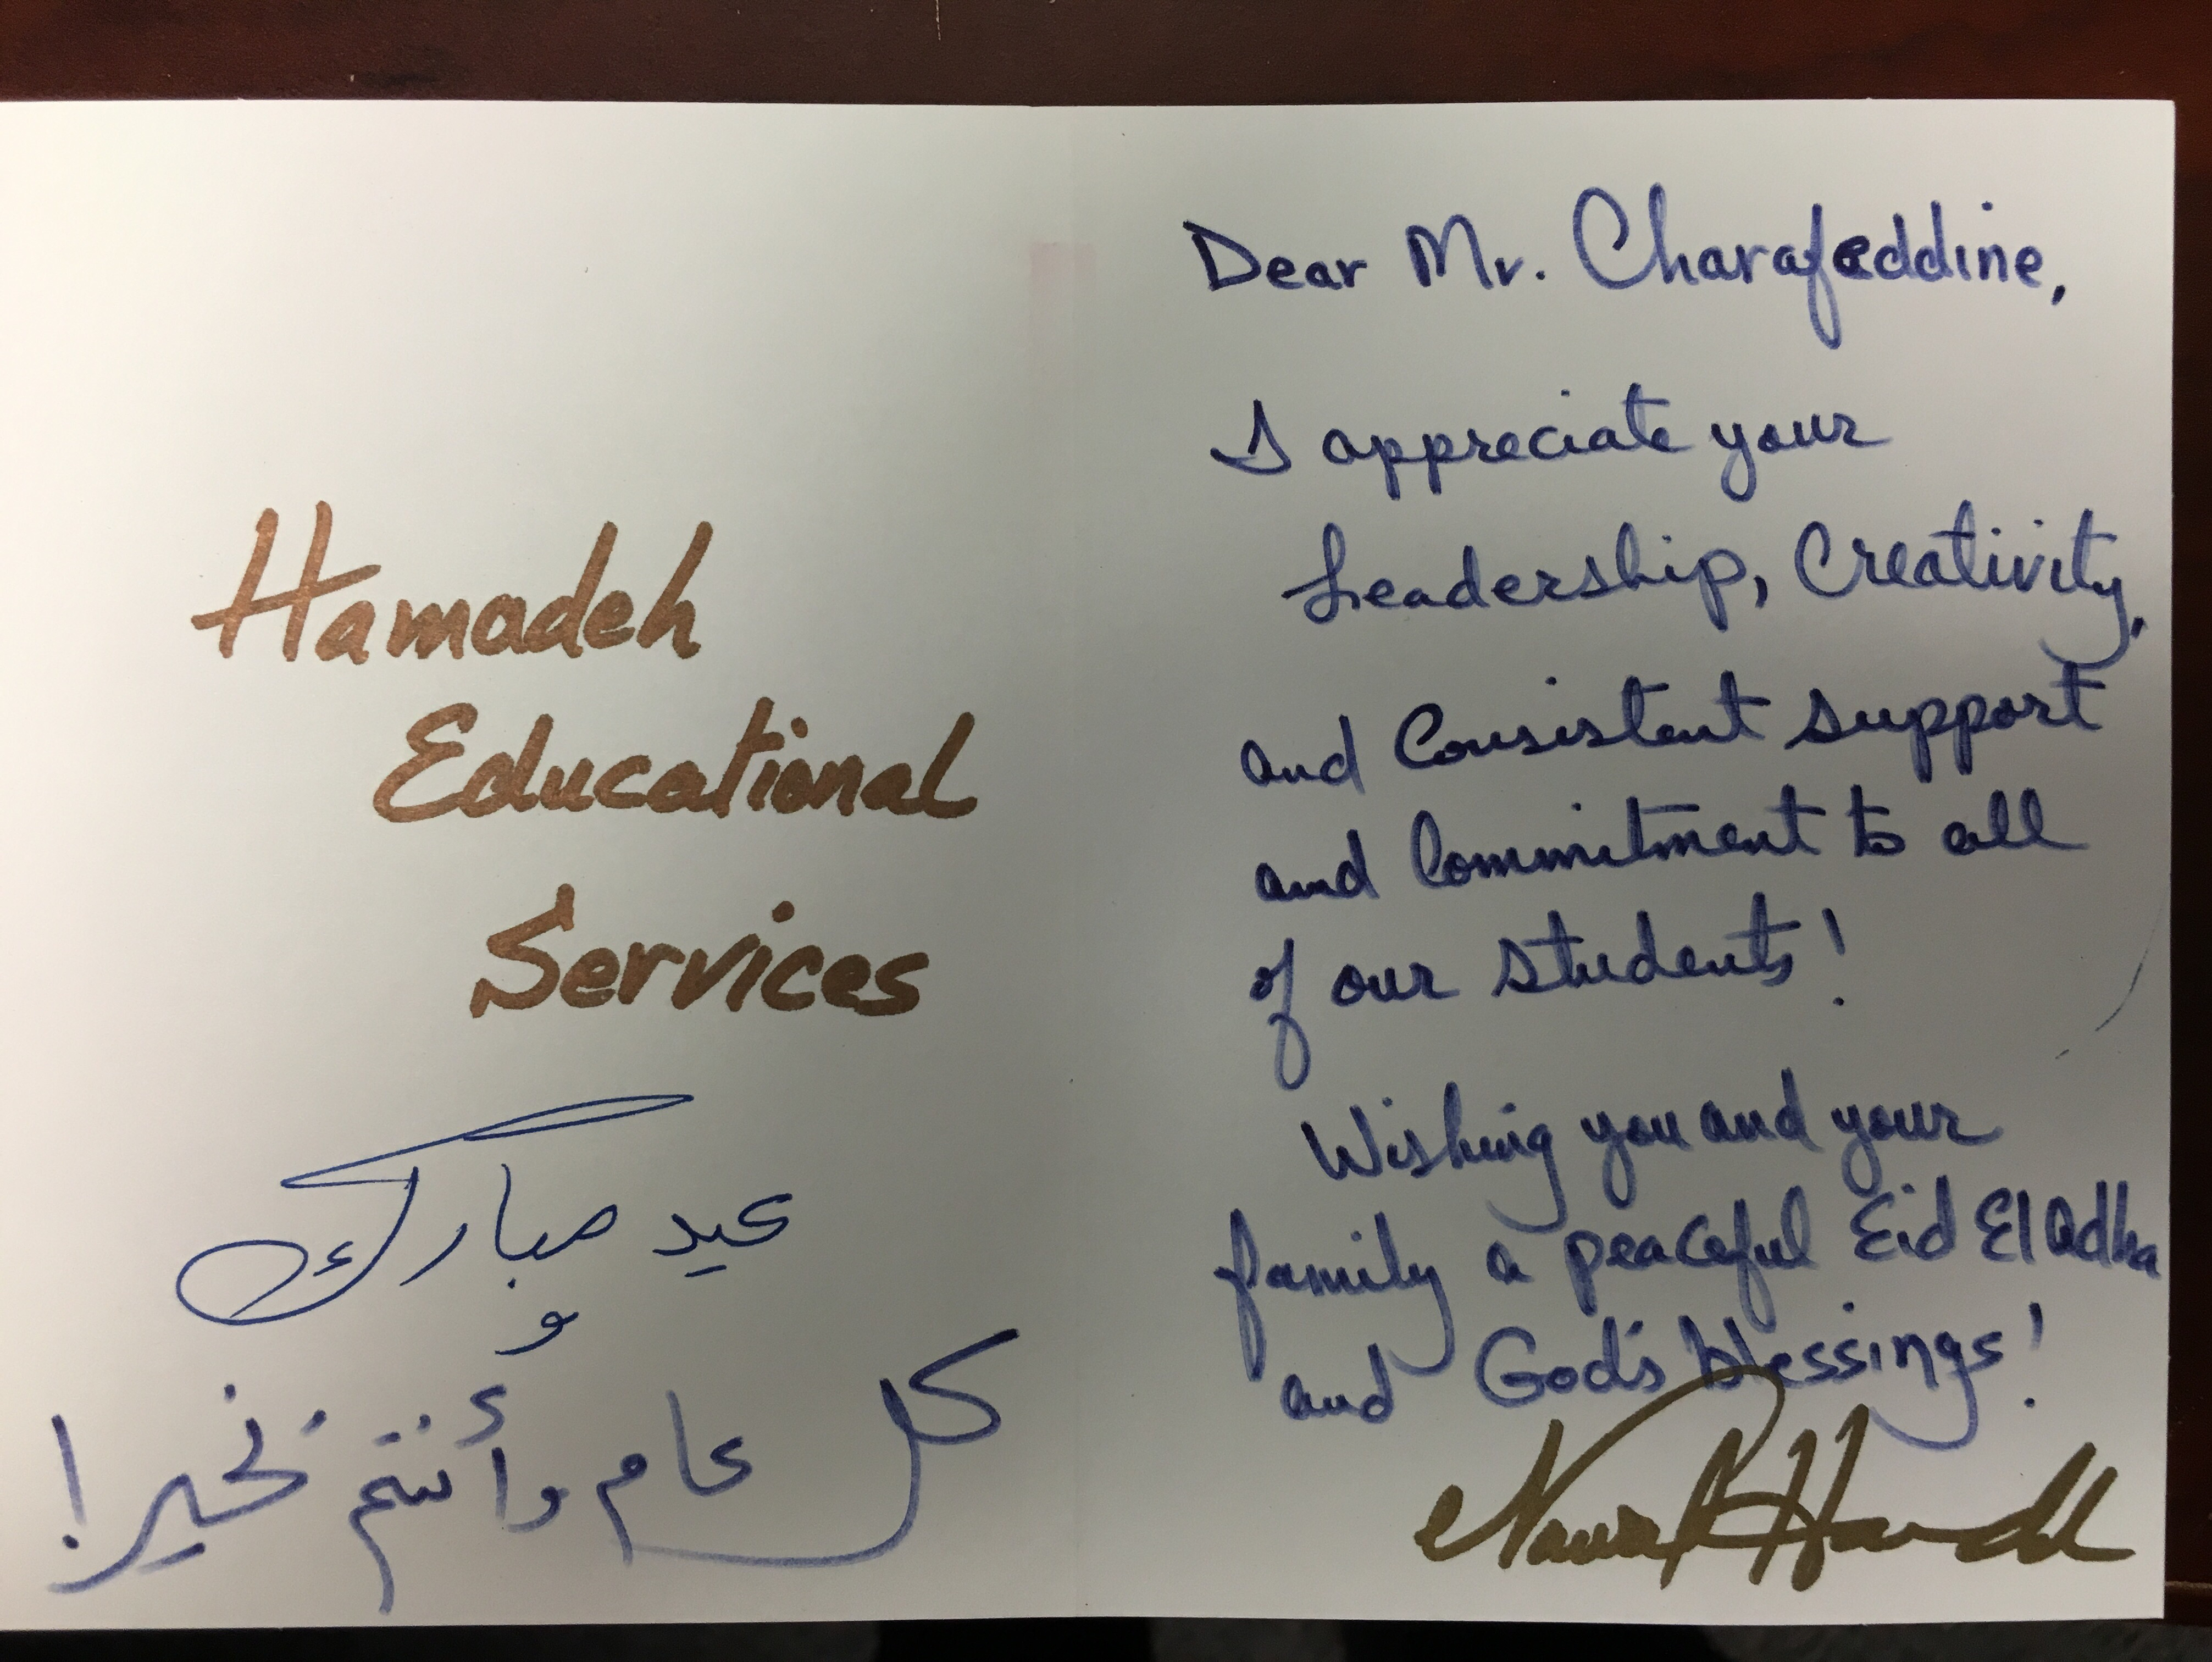 Hamadeh
Educational
Services
عيد مبارك
و
كل عام وأنتم بخير!
Dear Mr. Charafeddine,
I appreciate your
Leadership, Creativity,
and Consistent support
and Commitment to all
of our students!
Wishing you and your
family a peaceful Eid El Adha
and God's blessings!